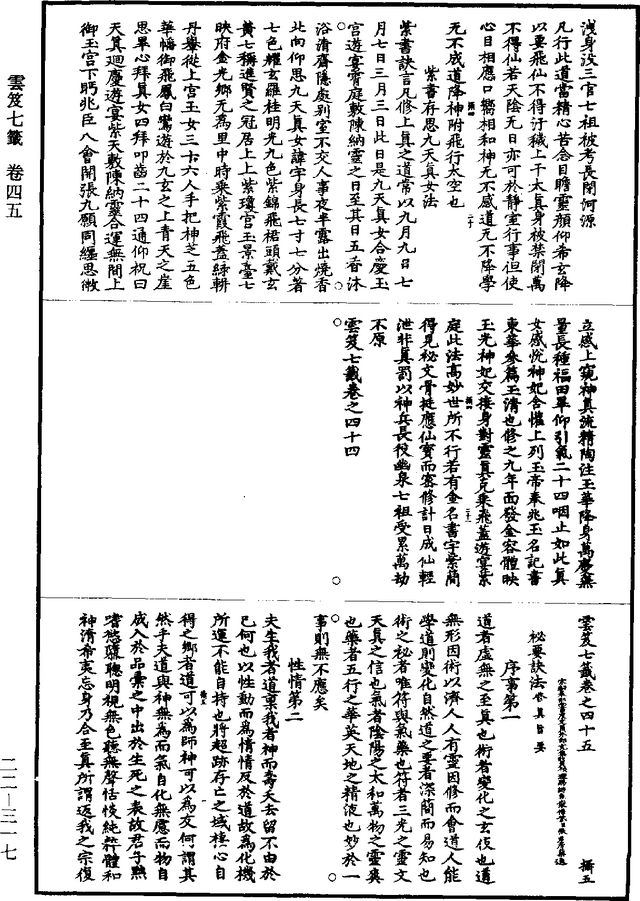 雲笈七籤　卷四五
洩身没三官七祖被考長閉河源
凡行此道當精心苦念目瞻靈顏仰希玄降
以要飛仙不得汙穢上干太真身被禁閉萬
不得仙若天陰無日亦可於靜室行事但使
心目相應口嚮相和神无不感道无不降學
无不成道降神附飛行太空也
紫書存思九天真女法
紫書訣言凡修上真之道常以九月九日七
月七日三月三日此日是九天真女合慶玉
宮遊宴霄庭敷陳納靈之日至其日五香沐
浴清齋隱處别室不交人事夜半露出燒香
北向仰思九天真女諱字身長七寸七分著
七色耀玄羅袿明光九色紫錦飛裙頭戴玄
黄七稱進賢之冠居上上紫瓊宮玉景臺七
映府金光鄉无為里中時乘紫霞飛蓋緑輧
丹轝從上宮玉女三十六人手把神芝五色
華幡御飛鳳白鸞遊於九玄之上青天之崖
思畢心拜真女四拜叩齒二十四通仰祝曰
天真廻慶遊宴紫天敷陳納靈合運無間上
御玉宮下眄兆臣八會開張九願同纏思微
立感上窺神真流精陶注玉華降身萬慶無
量長種福田畢仰引氣二十四咽止如此真
女感悦神妃含懽上列玉帝奉兆玉名記書
東華參篇玉清也修之九年面發金容體映
玉光神妃交接身對靈真克乘飛蓋遊宴紫
庭此法高妙世所不行若有金名書字紫簡
得見祕文骨挺應仙寶而密修計日成仙輕
泄非真罰以神兵長役幽泉七祖受累萬劫
不原
雲笈七籤卷之四十四
雲笈七籤卷之四十五　攝五
祕要訣法 修真旨要
序事第一
道者虛無之至真也術者變化之玄伎也道
無形因術以濟人人有靈因修而會道人能
學道則變化自然道之要者深簡而易知也
術之祕者唯符與氣藥也符者三光之靈文
天真之信也氣者陰陽之太和萬物之靈爽
也藥者五行之華英天地之精液也妙於一
事則無不應矣
性情第二
夫生我者道稟我者神而壽夭去留不由於
己何也以性動而為情情反於道故為化機
所運不能自持也將超跡存亡之域棲心自
得之鄉者道可以為師神可以為友何謂其
然乎夫道與神無為而氣自化無慮而物自
成入於品彙之中出於生死之表故君子黜
嗜慾隳聰明視無色聽無聲恬惔純粹體和
神清希夷忘身乃合至真所謂返我之宗復
二二—三一七